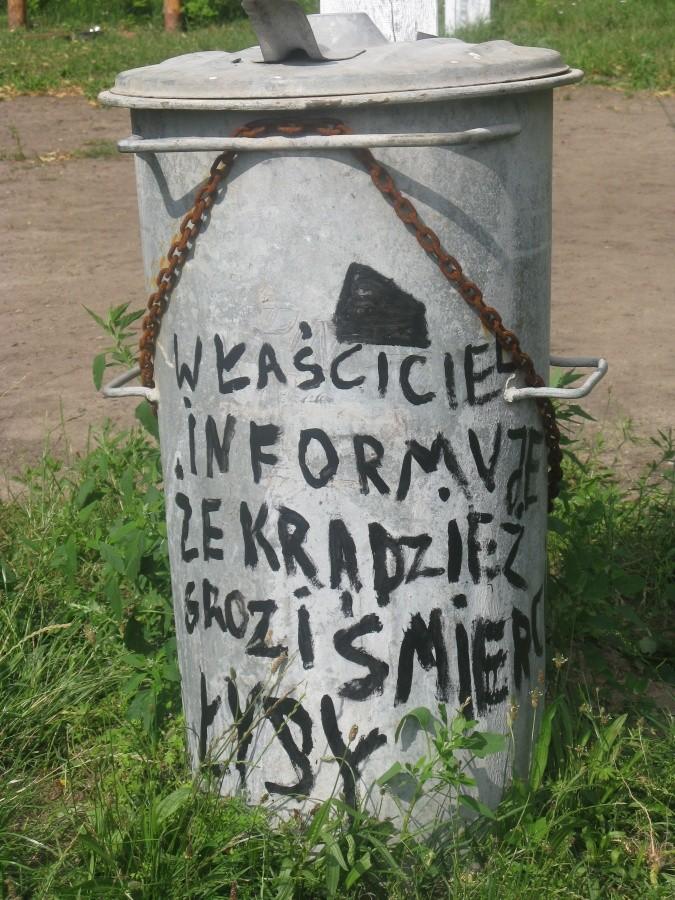 WŁAŚCICIEL
INFORMUJE
ŻE KRADZIEŻ
GROZI ŚMIERC
ŁYSY